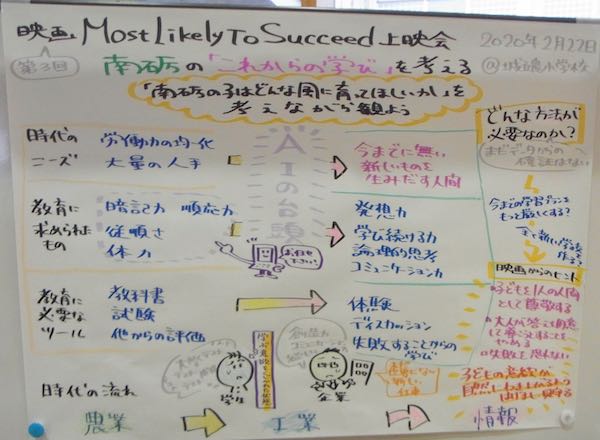 映画 Most Likely To Succeed 上映会
2020年2月22日
第3回
南砺の「これからの学び」を考える
@城端小学校
「南砺の子はどんな風に育ってほしいか」を
考えながら観よう
時代の
ニーズ
労働力の均一化
大量の人手
AIの台頭
今までに無い
新しいものを
生みだす人間
どんな方法が
必要なのか?
まだデータからの
確証はない
教育に
求められた
もの
暗記力 順応力
従順さ
体力
お任せ
下さい!
発想力
学び続ける力
論理的思考
コミュニケーション力
今までの学習プランを
もっと厳しくする?
映画からのヒント
教育に
必要な
ツール
教科書
試験
他からの評価
体験
ディスカッション
失敗することからの
学び
子どもを1人の人間
として尊敬する
大人が答えを用意
して
やめる
失敗を恐れない
子どもの意欲が
時代の流れ
学生
企業
農業
工業
情報